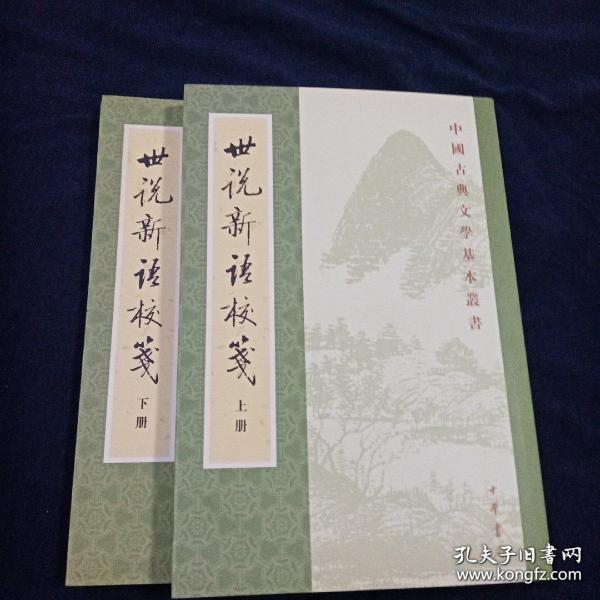 世说新语校笺
下册
世说新语校笺
上册
中國古典文學基本叢書
中華書
孔夫子旧书网
www.kongfz.com